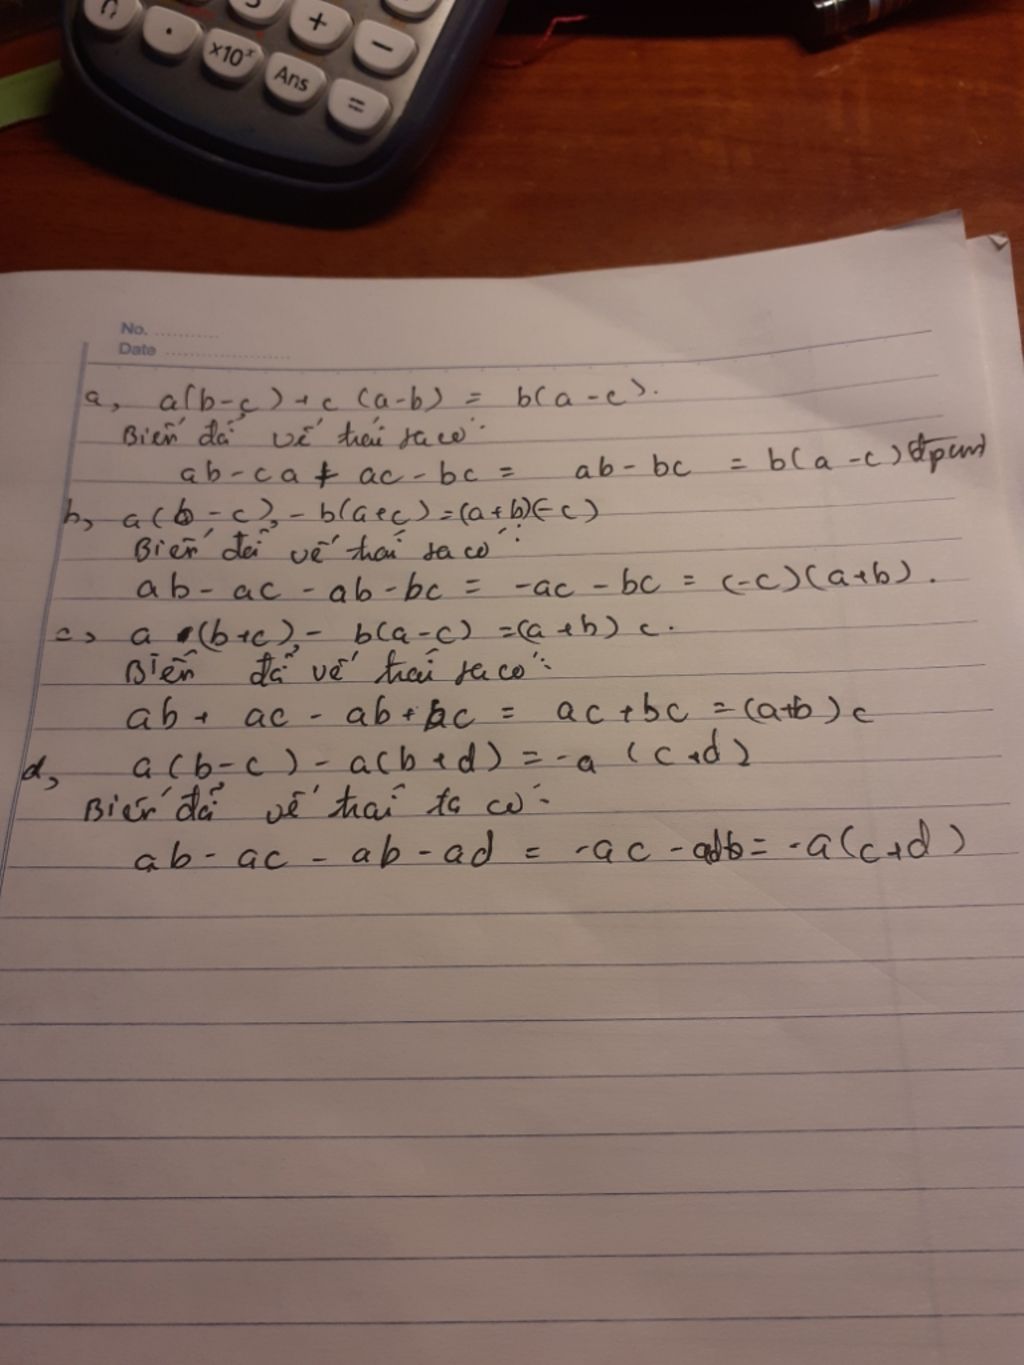 +
−
×10ˣ
Ans
=
No. ..........
Date ....................
a, a(b-c) + c (a-b) = b(a-c).
Biến đổi vế trái ta có:
ab - ca + ac - bc = ab - bc = b(a-c) đpcm
b, a(b-c) - b(a+c) = (a+b)(-c)
Biến đổi vế trái ta có:
ab - ac - ab - bc = -ac - bc = (-c)(a+b).
c, a (b+c) - b(a-c) = (a+b) c.
Biến đổi vế trái ta có:
ab + ac - ab + bc = ac + bc = (a+b) c
d, a(b-c) - a(b+d) = -a (c+d)
Biến đổi vế trái ta có:
ab - ac - ab - ad = -ac - ad = -a(c+d)